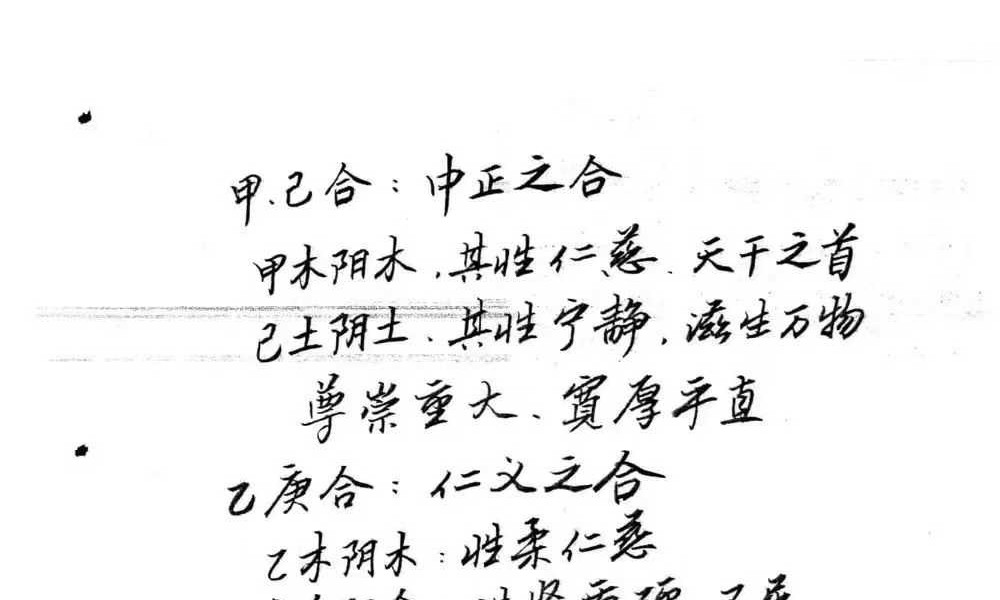 甲、己合：中正之合
甲木阳木，其性仁慈、天干之首
己土阴土、其性宁静，滋生万物
尊崇重大、宽厚平直
乙庚合：仁义之合
乙木阴木：性柔仁慈